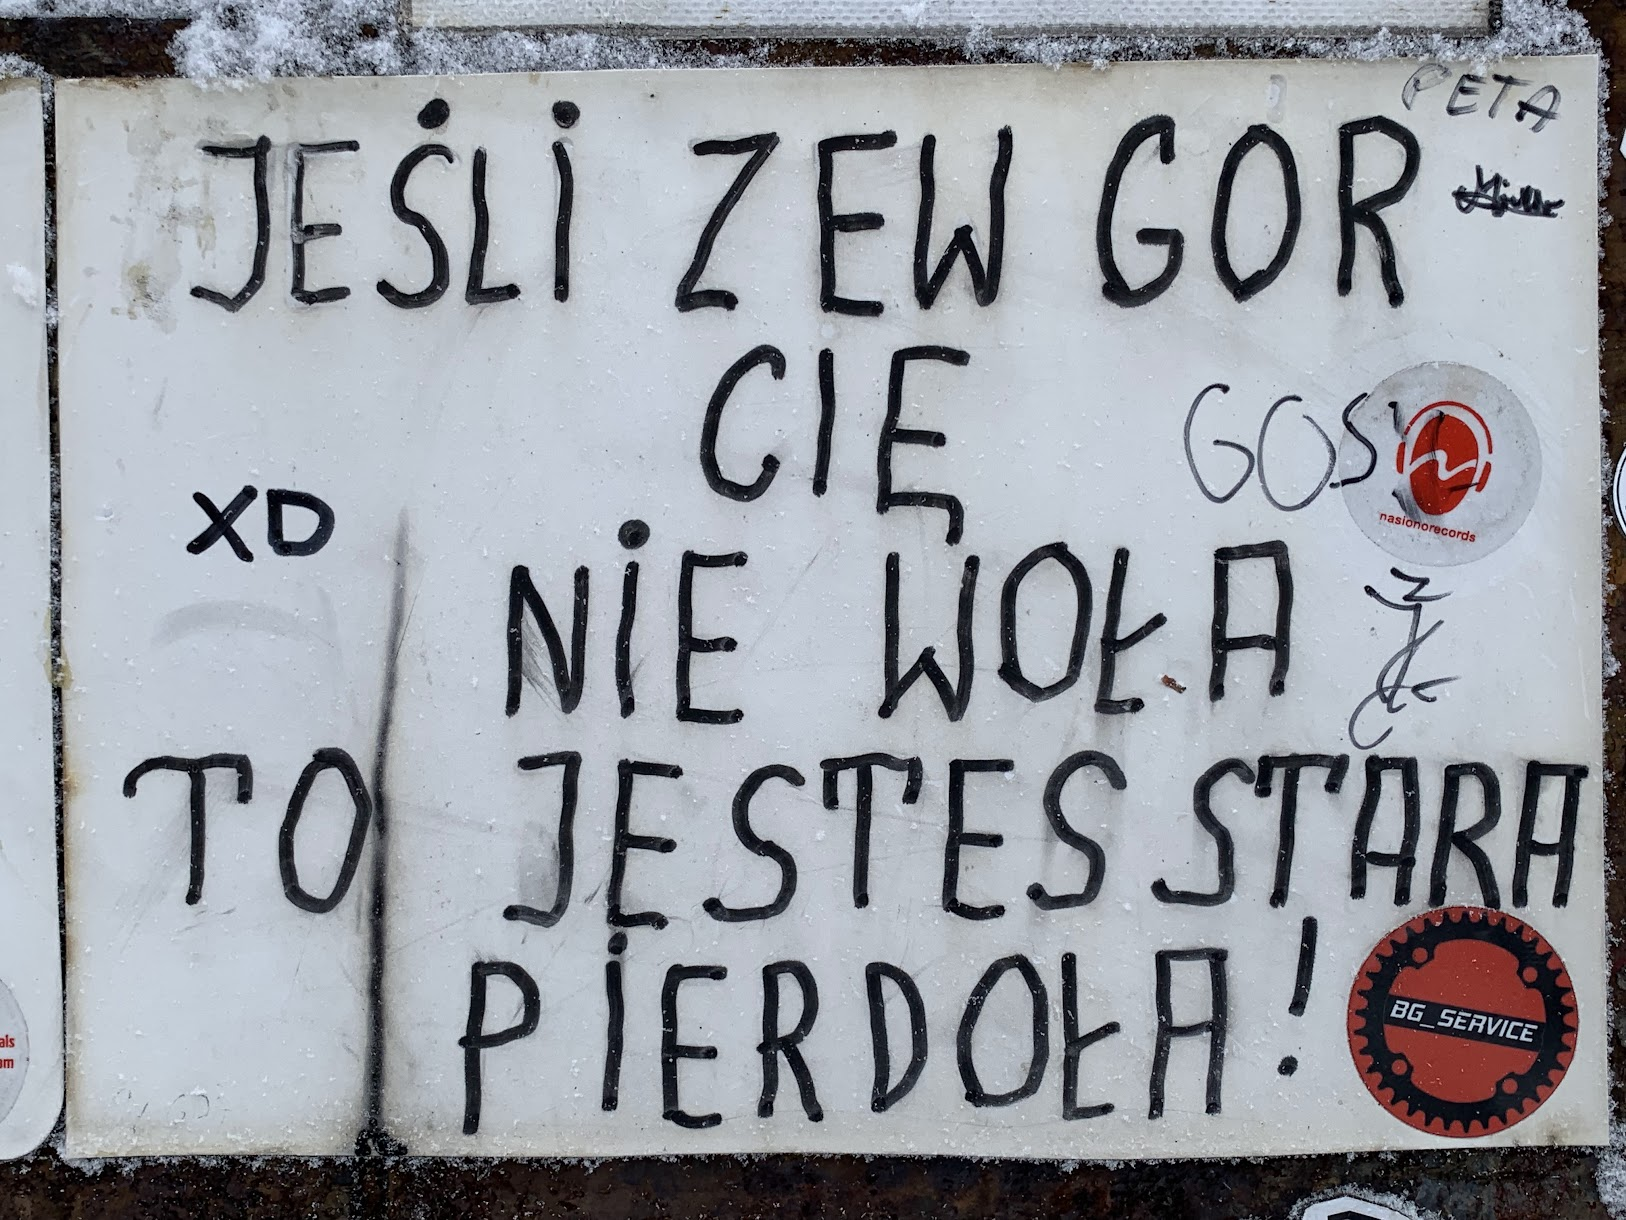 PETA
JEŚLI ZEW GOR
CIĘ
GOS
nasionorecords
XD
NIE WOŁA
TO JESTES STARA
PIERDOŁA!
BG_SERVICE
als
om